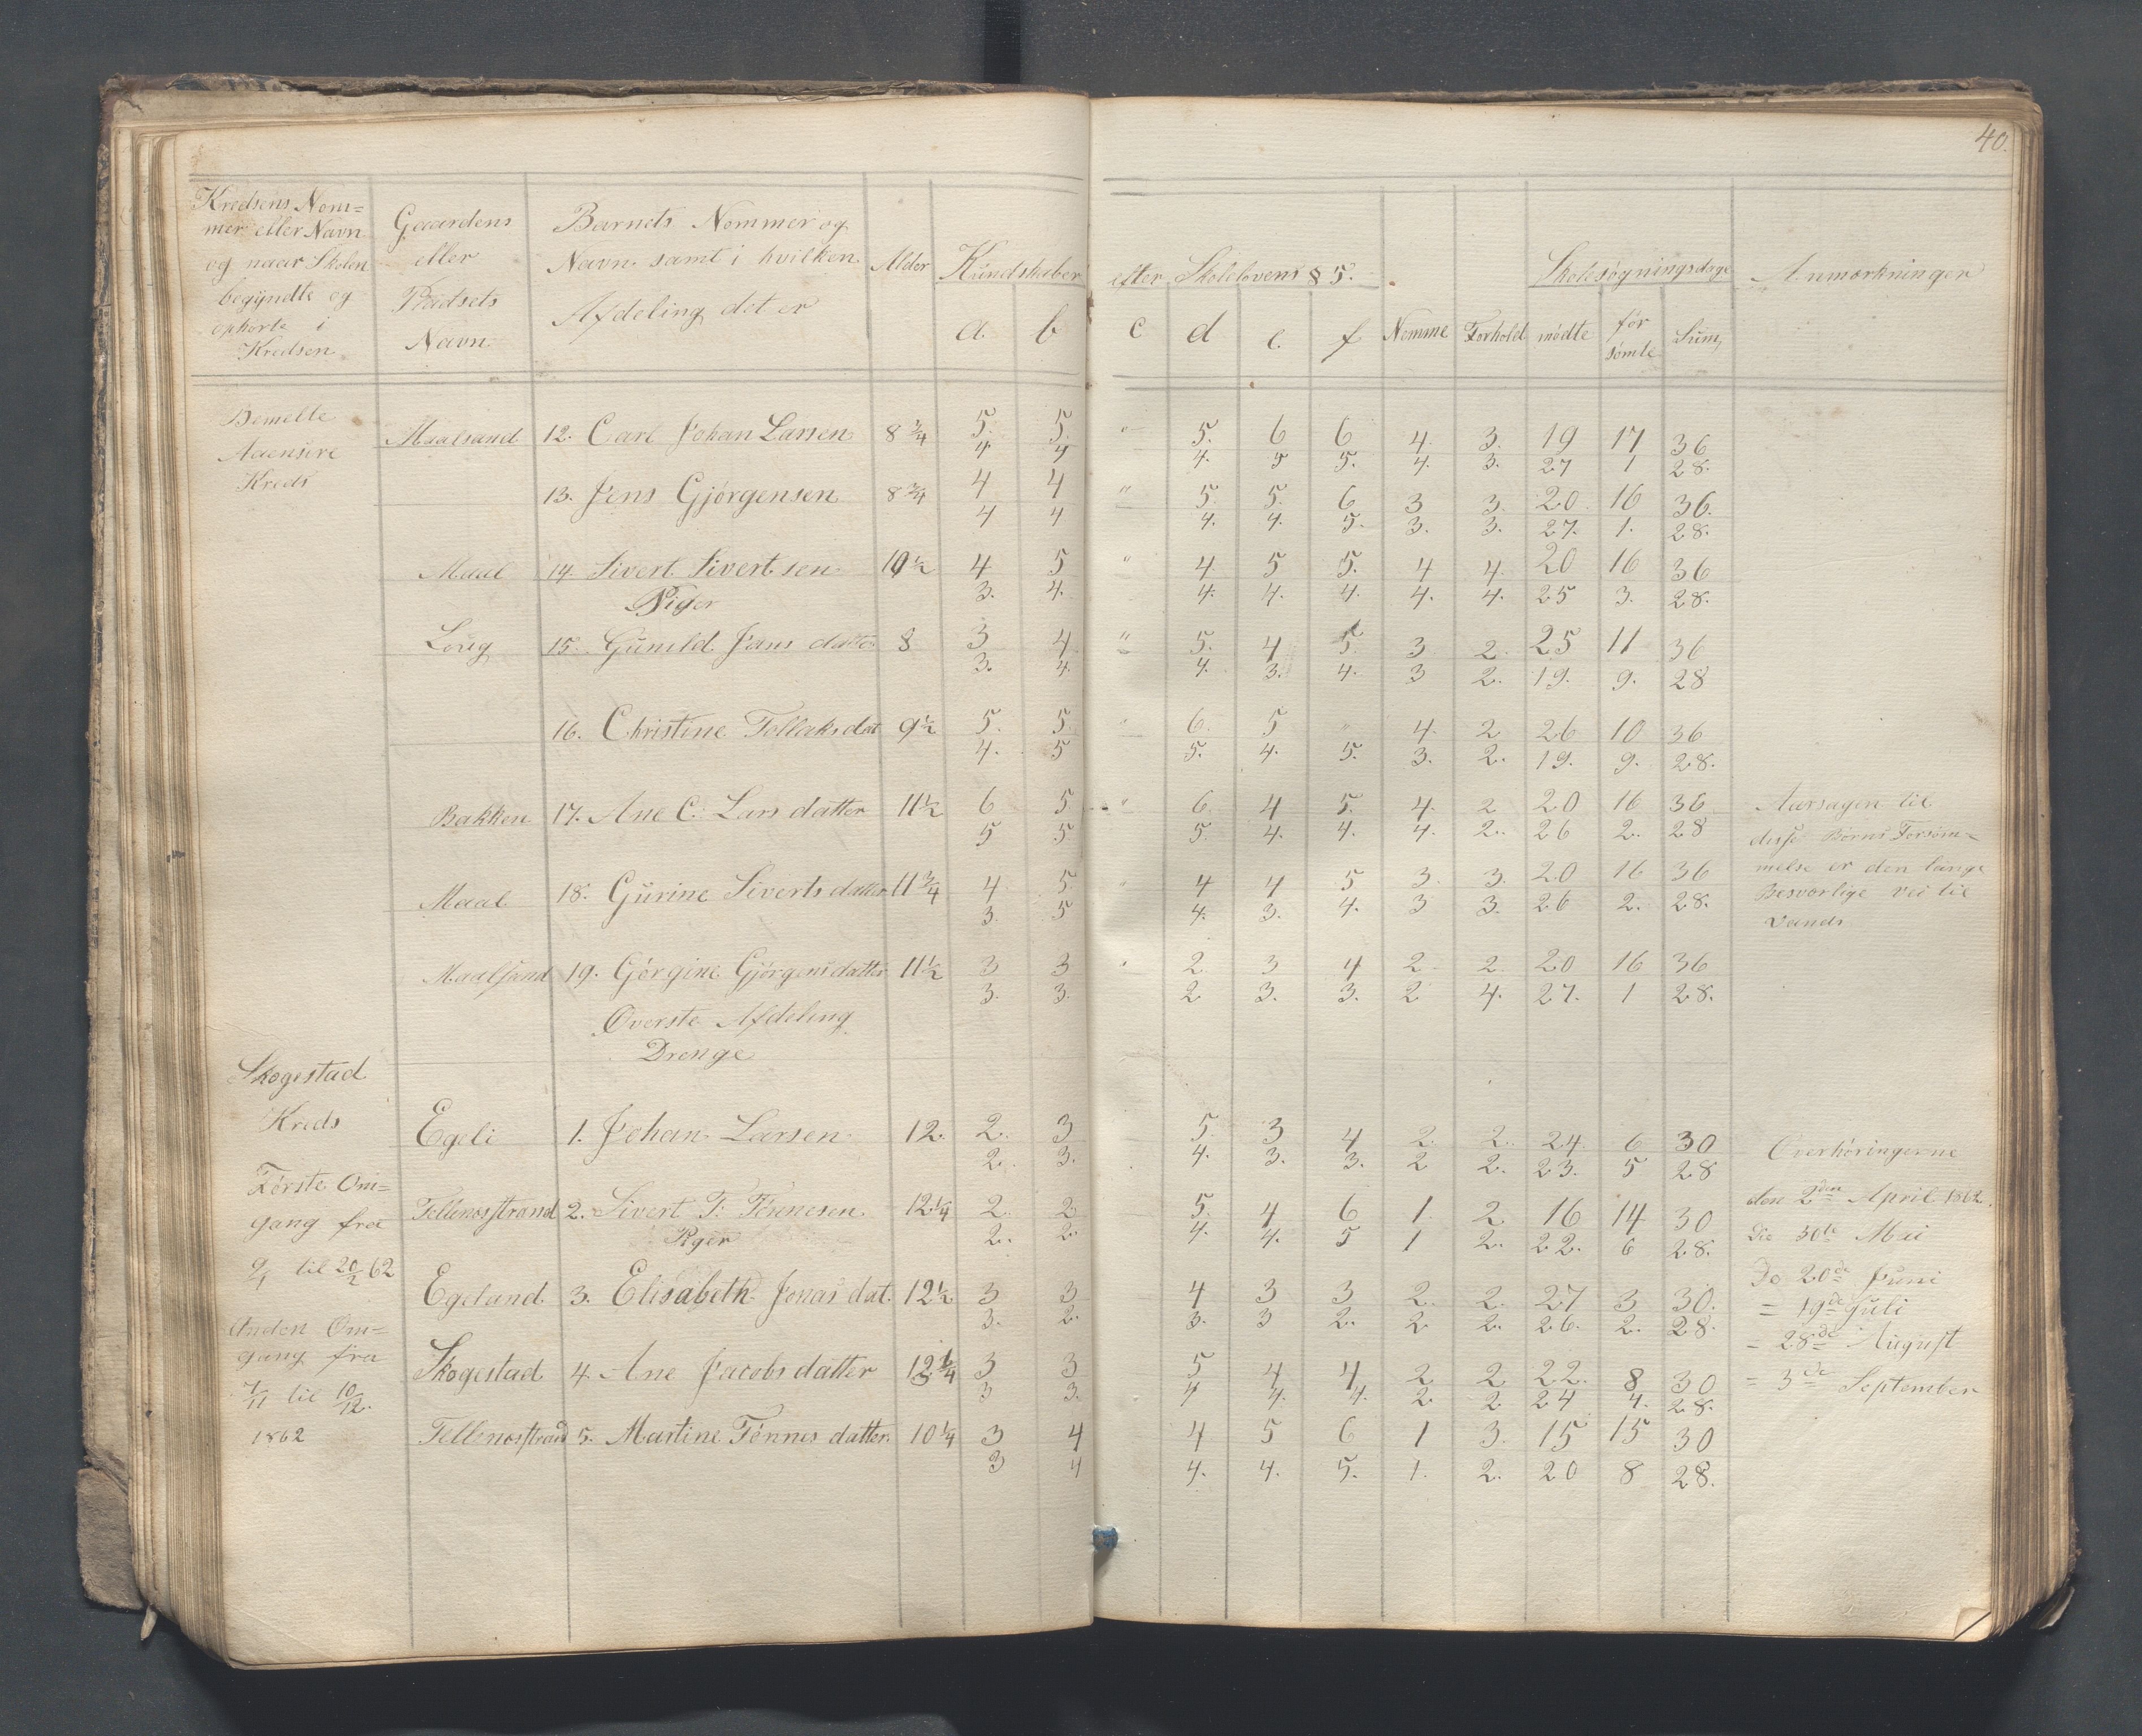 40.
Kredsens Nom=
mer eller Navn
og naar Skolen
begyndte og
ophørte i
Kredsen.
Gaardens
eller
Pladsets
Navn
Barnets Nommer og
Navn samt i hvilken
Afdeling det er
Alder
Kundskaber
a. b
efter Skolelovens § 5.
c d e. f
Nemme Forhold
Skolesøgningsdage
mødte før sømte Sum,
Anmærkninger
Bemelte
Aaensire
Kreds
Maalsand 12. Carl Johan Larsen 8 3/4 5. 5. " 5. 6 6 4. 3. 19 17 36
4 4 4. 5 5. 4. 3. 27 1 28.
13. Jens Gjørgensen 8 3/4 4 4 " 5. 5. 6 3 3. 20. 16 36.
4 4 4. 4. 5. 3. 3. 27. 1. 28.
Maal 14. Sivert Sivertsen 10 1/2 4 5 " 4 5 5. 4 4. 20 16 36
3. 4. 4. 4. 4. 4. 4. 25 3. 28.
Piger
Løvig 15. Gunild Jans datter 8 3 4 " 5. 4 5. 3 2. 25 11 36
3. 4. 4. 3. 4. 3 2. 19. 9. 28
16. Christine Tollaksdat 9 1/2 5. 5. " 6. 5 " 4. 2 26 10 36
4. 5 5. 4. 5. 3. 2. 19. 9. 28.
Bakken 17. Ane C. Lars datter 11 1/2 6 5 " 6. 4 5. 4. 2 20 16 36
5 5. 5. 4. 4. 4. 2. 26 2. 28
Maal 18. Gurine Siverts datter 11 3/4 4 5 " 4 4 5 3. 3. 20 16 36
3. 5 4. 3. 4. 3 3. 26 2. 28.
Maalsand 19. Gjørgine Gjørgensdatter 11 1/2 3 3 " 2 3 4 2. 2. 20 16 36
3. 3. 2 3. 3. 2 4. 27. 1 28.
Aarsagen til
disse Børns Forsøm=
melse er den lange
Besværlige vei til
Vands
Øverste Afdeling
Drenge
Skogestad
Kreds
Første Om=
gang fra
9/1 til 20/2 62
Anden Om=
gang fra
7/11 til 10/12.
1862
Egeli 1. Johan Larsen 12. 2. 3 5. 3 4 2. 2. 24. 6 30
2. 3. 4. 3. 3. 2 2. 23. 5 28
Tellenesstrand 2. Sivert T. Tønnesen 12 1/4 2. 2 5. 4 6 1. 2 16 14 30
2. 2. 4. 4. 5 1 2. 22. 6 28.
Piger
Egeland 3. Elisabeth Jonas dat. 12 1/2 3 3 4 3 3 2. 2. 27 3 30.
3. 2. 3. 3 2. 2 2. 26. 2. 28.
Skogestad 4. Ane Jacobs datter 12 1/4 3 3 5 4 4 2 2 22. 8 30
3 3. 4 4. 4. 2. 2 24 4. 28.
Tellenesstrand 5. Martine Tønnes datter. 10 1/4 3 4 4 5 6 1 3. 15 15 30
3 4 4. 4. 5. 1. 2. 20 8 28.
Overhøringerne
den 2den April 1862.
Die 30te Mai
Do 20de Juni
= 19de Juli
= 28de August
= 3de September